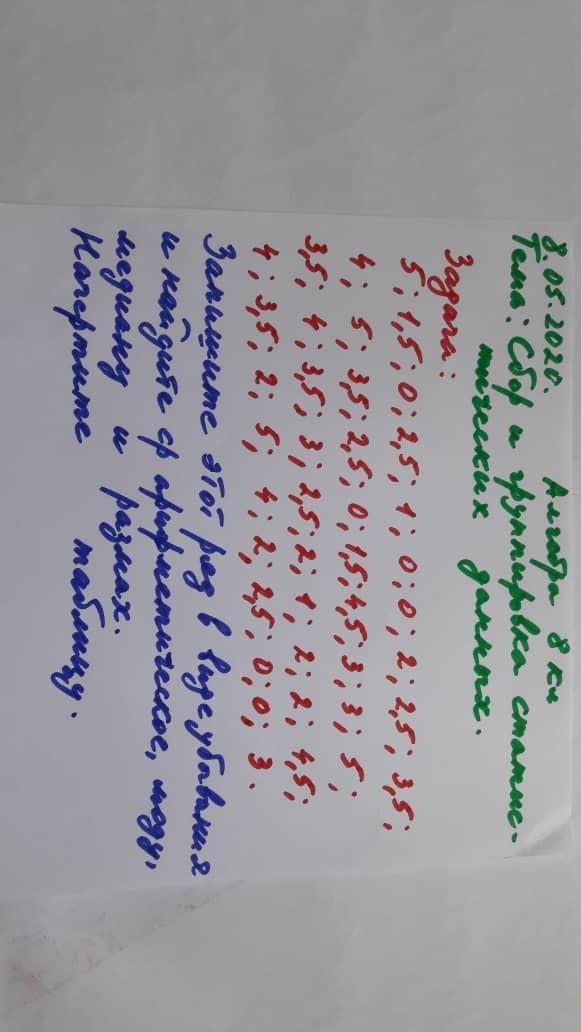 8.05.2020. Алгебра 8 кл
Тема: Сбор и группировка статис-
тических данных.
Задача:
5; 1,5; 0; 2,5; 1; 0; 0; 2; 2,5; 3,5;
4; 5; 3,5; 2,5; 0; 1,5; 4,5; 3; 3; 5;
3,5; 4; 3,5; 3; 2,5; 2; 1; 2; 2; 4,5;
4; 3,5; 2; 5; 4; 2; 2,5; 0; 0; 3.
Запишите этот ряд в виде убывания
и найдите ср арифметическое, моду,
медиану и размах.
Начертите таблицу.